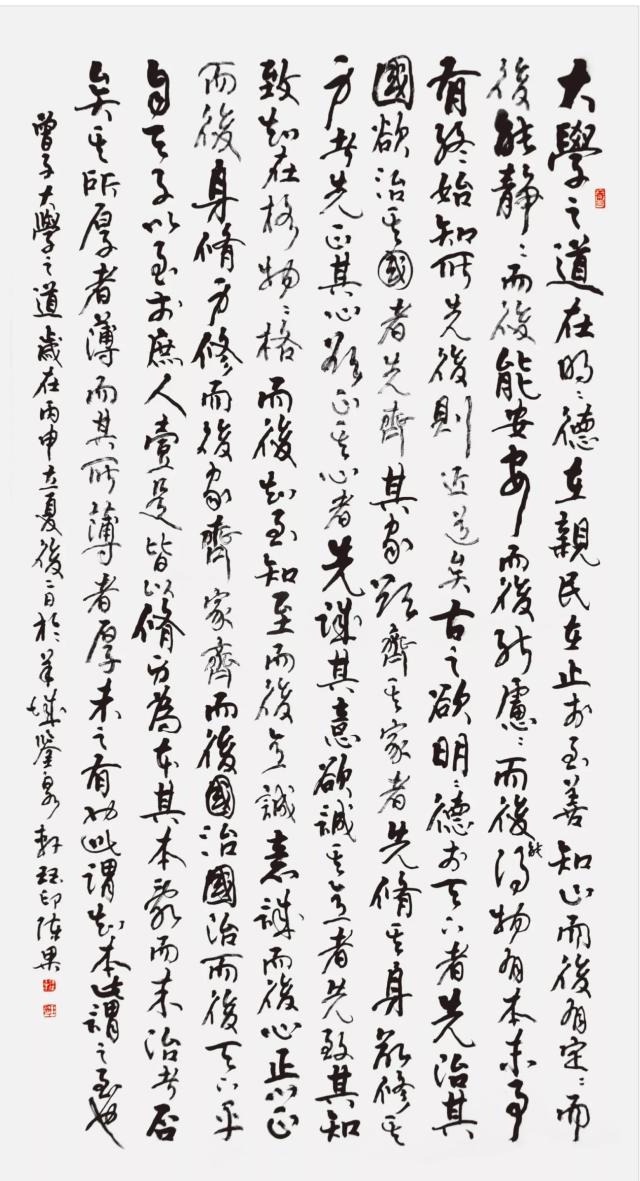 大學之道在明〻德在親民在止於至善知止而後有定〻而
後能靜〻而後能安安而後能慮〻而後能得物有本末事
有終始知所先後則近道矣古之欲明〻德於天下者先治其
國欲治其國者先齊其家欲齊其家者先脩其身欲修其
身者先正其心欲正其心者先誠其意欲誠其意者先致其知
致知在格物〻格而後知至知至而後意誠意誠而後心正心正
而後身脩身修而後家齊家齊而後國治國治而後天下平
自天子以至於庶人壹是皆以脩身為本其本亂而末治者否
矣其所厚者薄而其所薄者厚未之有也此謂知本此謂之至也
曾子大學之道歲在丙申立夏後二日於羊城鑒泉軒印陳果